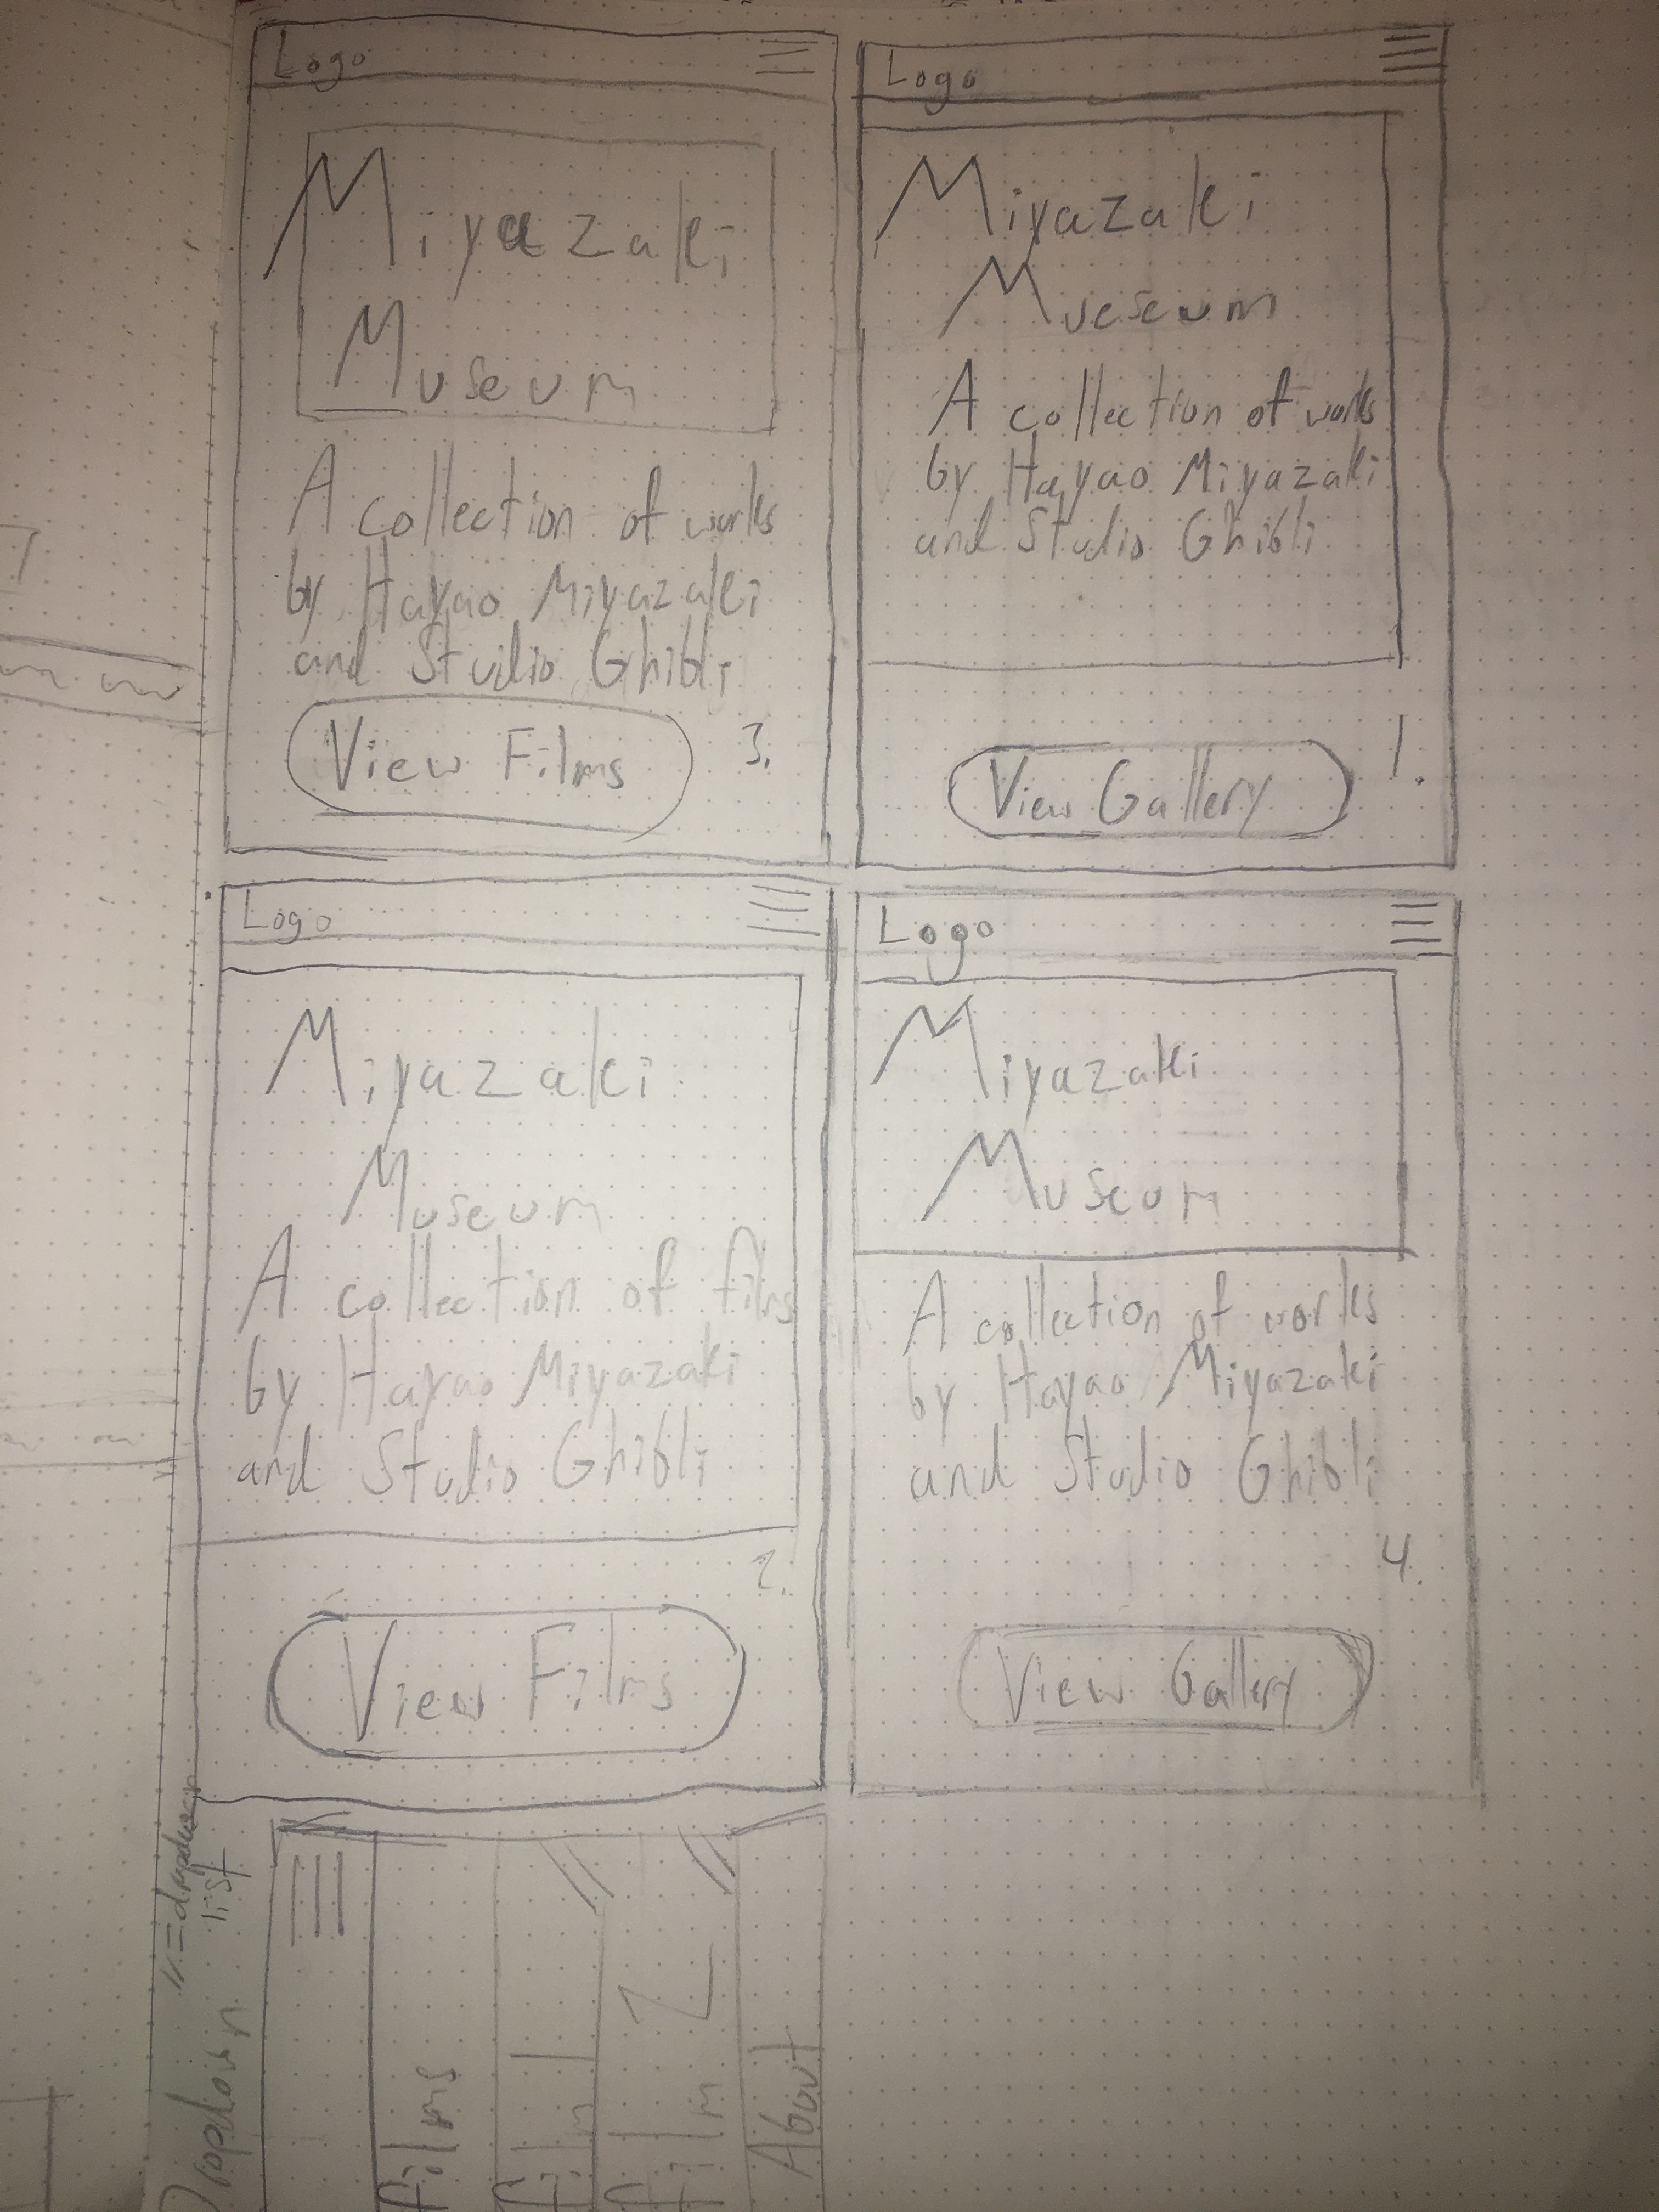 Logo
Miyazaki
Museum
A collection of works
by Hayao Miyazaki
and Studio Ghibli
View Films
3.
Logo
Miyazaki
Museum
A collection of works
by Hayao Miyazaki
and Studio Ghibli
View Gallery
1.
Logo
Miyazaki
Museum
A collection of films
by Hayao Miyazaki
and Studio Ghibli
2.
View Films
Logo
Miyazaki
Museum
A collection of works
by Hayao Miyazaki
and Studio Ghibli
4.
View Gallery
Dropdown
// = dropdown
list
films
film 1
film 2
About